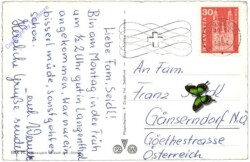 Liebe Fam. Seidl!
Bin am Montag in der Früh
um ½ 2 Uhr gut in Langenthal
angekommen. War nur ein
bisserl müde, sonst ganz
schön.
Herzliche Grüße sendet
euch
30
HELVETIA
An Fam.
Franz
Gänserndorf N.Ö.
Goethestrasse
Österreich.